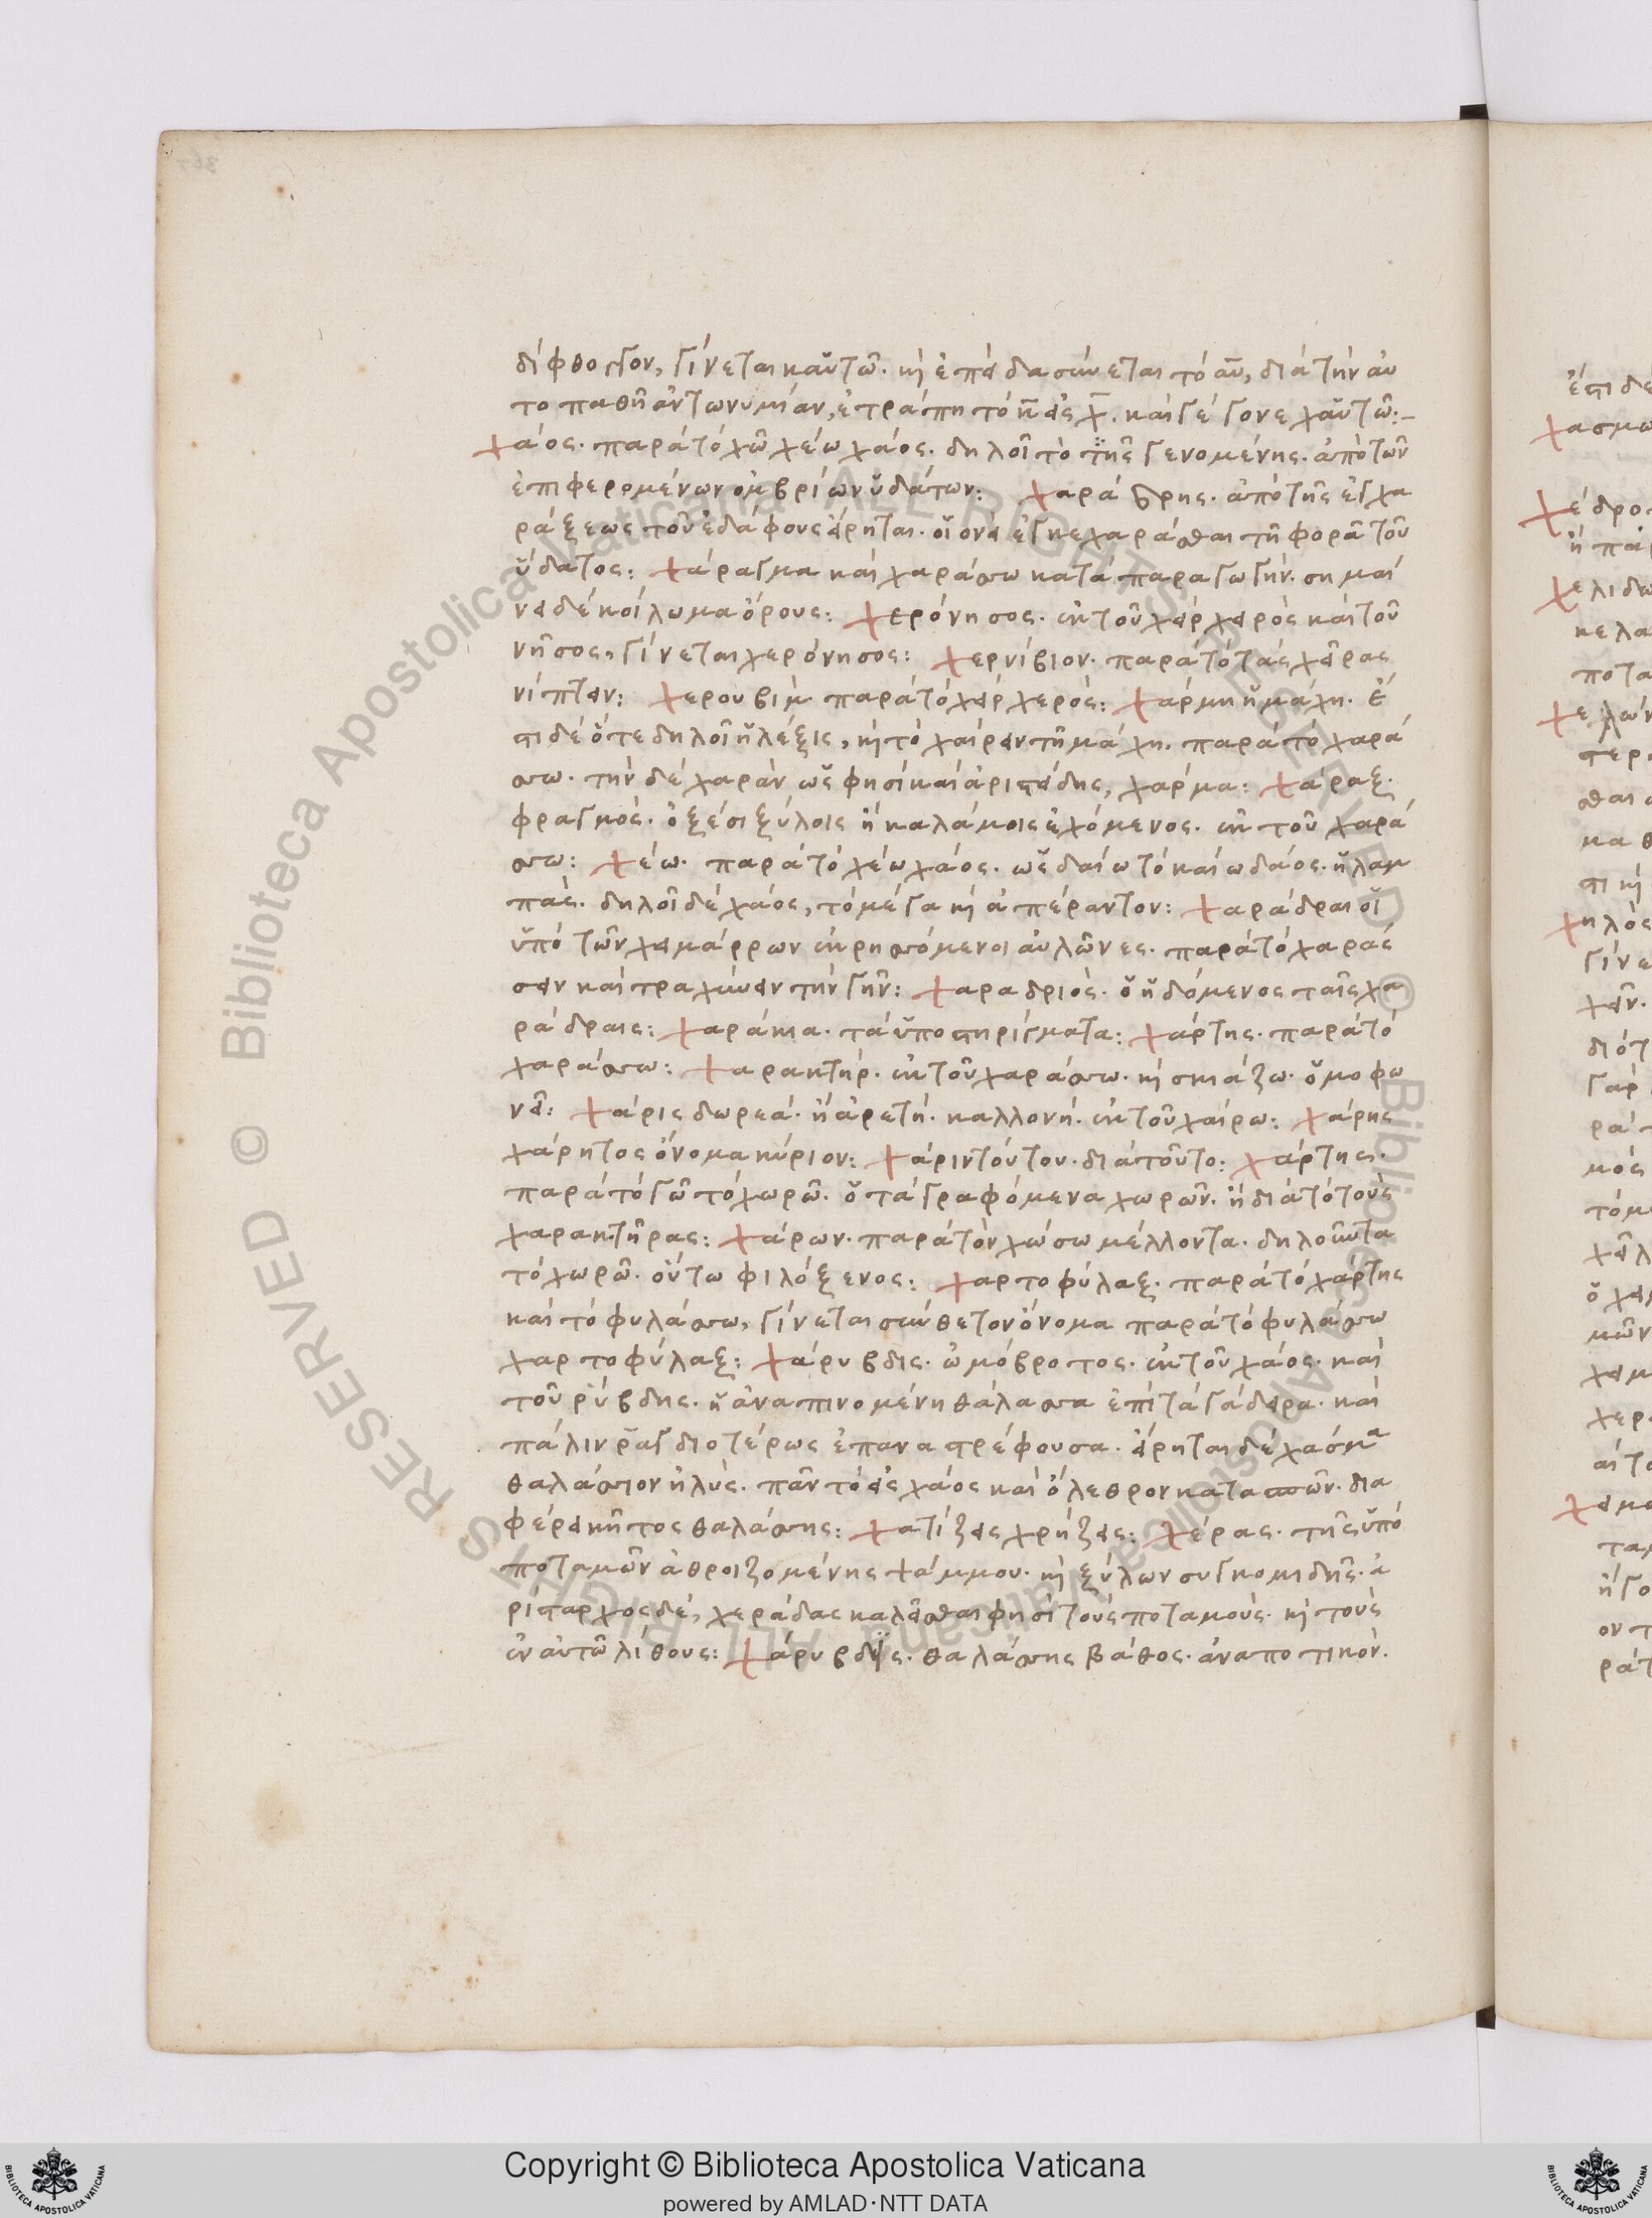 δίφθογγον, γίνεται καὐτῶ. καὶ ἐπεὶ δασύνεται τὸ αυ, διὰ τὴν αυ
το παθῆ ἀντωνυμίαν, ἐτράπη τὸ κ εἰς χ. καὶ γέγονε χαὐτῶ:
χάος. παρὰ τὸ χῶ χέω χάος. δηλοῖ τὸ τῆς γενομένης. ἀπὸ τῶν
ἐπιφερομένων ὀμβρίων ὑδάτων: χαράδρης. ἀπὸ τῆς ἐγχα
ράξεως τοῦ ἐδάφους εἴρηται. οἱονεὶ ἐγκεχαράσθαι τῆ φορᾶ τοῦ
ὕδατος: χάραγμα καὶ χαράσσω κατὰ παραγωγήν. σημαί
νει δὲ κοίλωμα ὄρους: χερόνησος. ἐκ τοῦ χεὶρ χειρὸς καὶ τοῦ
νῆσος, γίνεται χερόνησος: χερνίβιον. παρὰ τὸ τὰς χεῖρας
νίπτειν: χερουβιμ παρὰ τὸ χεὶρ χερός: χάρμη ἡ μάχη. ἔ
στι δὲ ὅτε δηλοῖ ἡ λέξις, καὶ τὸ χαίρειν τῆ μάχη. παρὰ τὸ χαρά
σσω. τὴν δὲ χαρὰν ὥς φησὶ καὶ ἀριστείδης, χάρμα: χάραξ.
φραγμὸς. ὀξέσι ξύλοις ἢ καλάμοις ἐχόμενος. ἐκ τοῦ χαρά
σσω: χέω. παρὰ τὸ χέω χάος. ὡς δαίω τὸ καίω δάος. ἡ λαμ
πάς. δηλοῖ δὲ χάος, τὸ μέγα καὶ ἀπέραντον: χαράδραι οἱ
ὑπὸ τῶν χειμάρρων ἐκρησσόμενοι αὐλῶνες. παρὰ τὸ χαράς
σειν καὶ τραχύνειν τὴν γῆν: χαραδριός. ὁ ἡδόμενος ταῖς χα
ράδραις: χαράκια. τὰ ὑποστηρίγματα: χάρτης. παρὰ τὸ
χαράσσω: χαρακτήρ. ἐκ τοῦ χαράσσω. καὶ σκιάζω. ὁμοφω
νεῖ: χάρις δωρεά. ἢ ἀρετή. καλλονή. ἐκ τοῦ χαίρω: χάρης
χάρητος ὄνομα κύριον: χάριν τούτου. διὰ τοῦτο: χάρτης.
παρὰ τὸ γῶ τὸ χωρῶ. ὁ τὰ γραφόμενα χωρῶν. ἢ διὰ τὸ τοὺς
χαρακτῆρας: χάρων. παρὰ τὸν χώσω μέλλοντα. δηλοῦντα
τὸ χωρῶ. οὕτω φιλόξενος: χαρτοφύλαξ. παρὰ τὸ χάρτης
καὶ τὸ φυλάσσω, γίνεται σύνθετον ὄνομα παρὰ τὸ φυλάσσω
χαρτοφύλαξ: χάρυβδις. ὠμόβροτος. ἐκ τοῦ χάος. καὶ
τοῦ ῥύβδης. ἡ ἀναπινομένη θάλασσα ἐπὶ τὰ γάδειρα. καὶ
πάλιν ῥαγδιοτέρως ἐπαναστρέφουσα. εἴρηται δὲ χάσμα
θαλάσσιον ἰλύς. πᾶν τὸ εἰς χάος καὶ ὄλεθρον κατασπῶν. δια
φέρει κῆτος θαλάσσης: χατίζεις χρήζεις: χέρας. τῆς ὑπὸ
ποταμῶν ἀθροιζομένης ψάμμου. καὶ ξύλων συγκομιδῆς. ἀ
ρίσταρχος δέ, χεράδας καλεῖσθαι φησὶ τοὺς ποταμούς. καὶ τοὺς
ἐν αὐτῶ λίθους: χάρυβδης. θαλάσσης βάθος. ἀναποτικὸν.
Copyright © Biblioteca Apostolica Vaticana
powered by AMLAD·NTT DATA